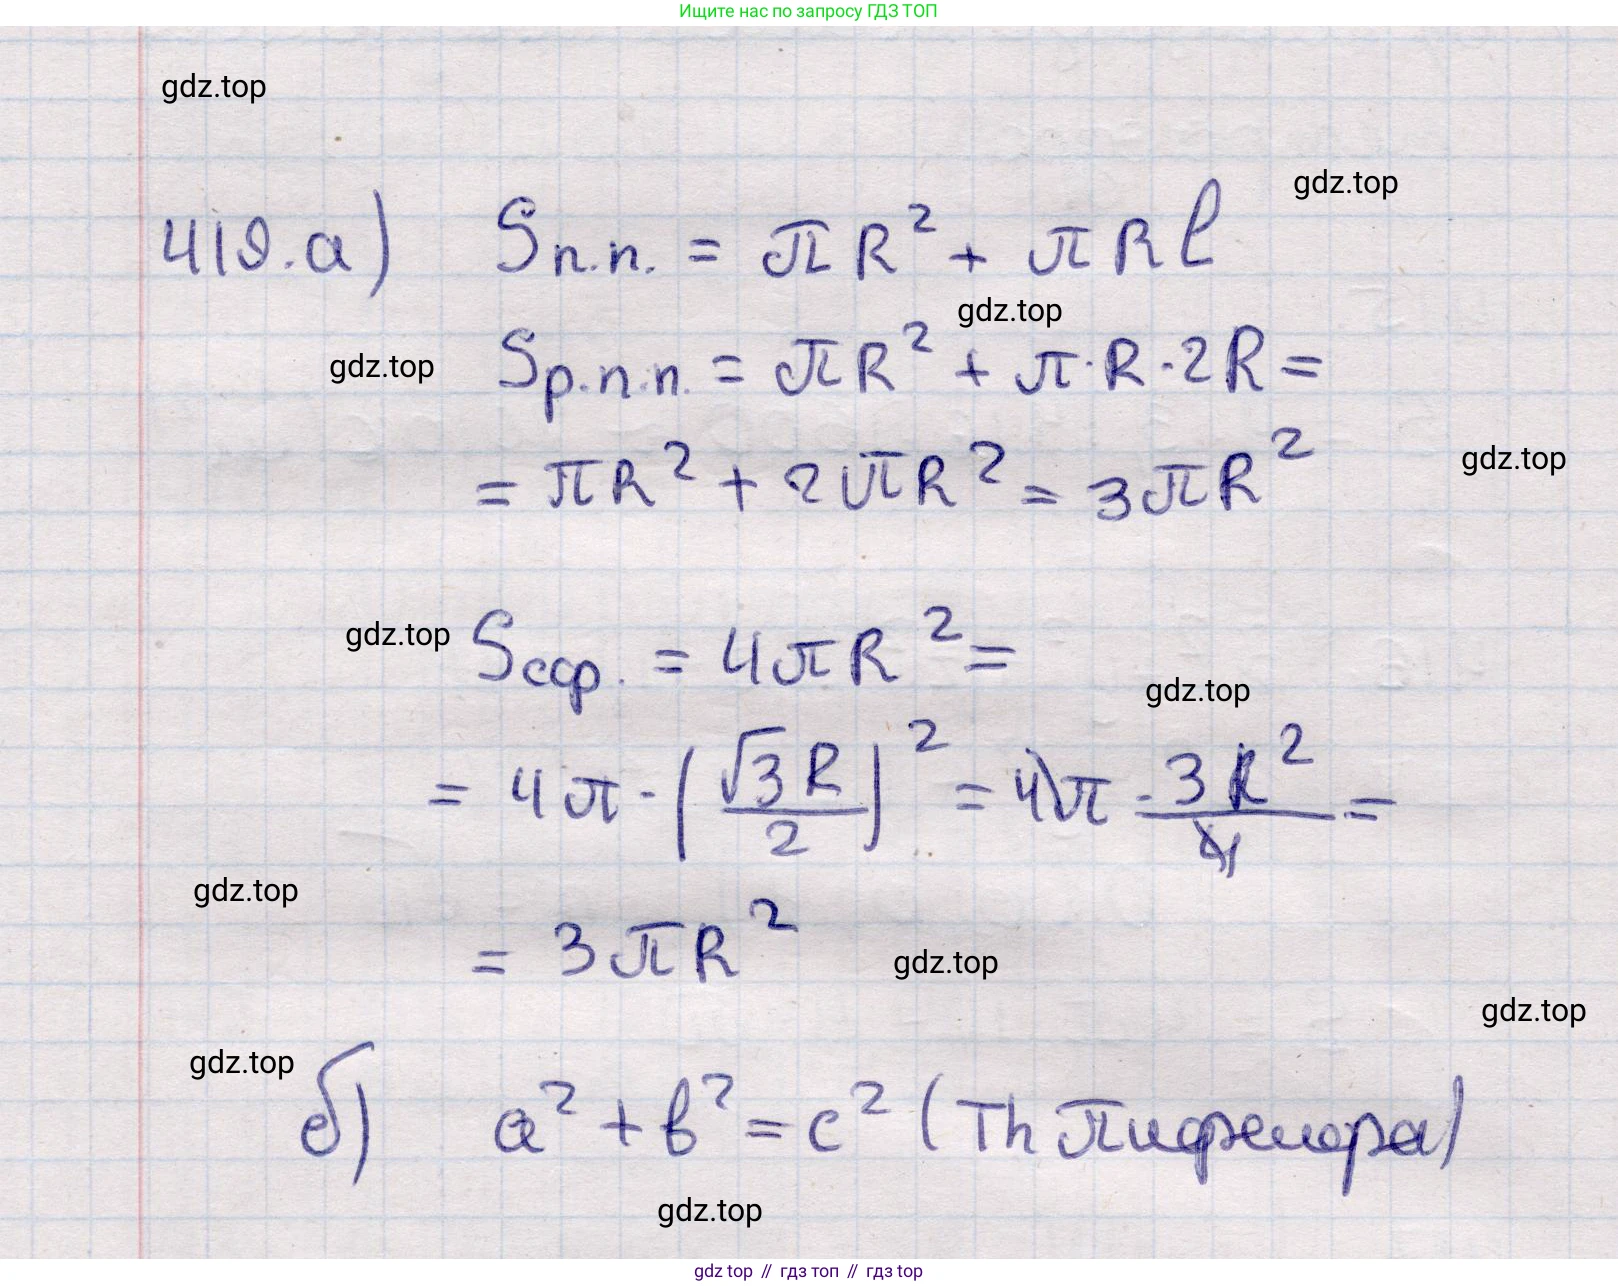 Ищите нас по запросу ГДЗ ТОП
gdz.top
419.а) Sп.п. = πR² + πRl
gdz.top
gdz.top
gdz.top
Sр.п.п. = πR² + π·R·2R =
= πR² + 2πR² = 3πR²
gdz.top
gdz.top
Sсф. = 4πR² =
gdz.top
= 4π·(√3R/2)² = 4π·3R²/4 =
gdz.top
= 3πR²
gdz.top
gdz.top
gdz.top
б) a² + b² = c² (Th Пифагора)
gdz.top
gdz top // гдз топ // гдз top